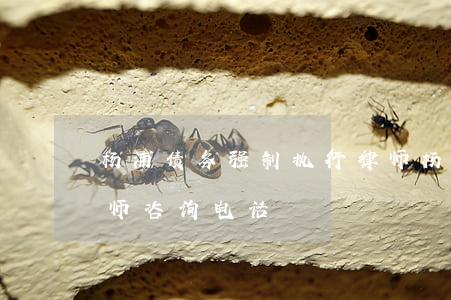 杨浦债务强制执行律师杨
师咨询电话